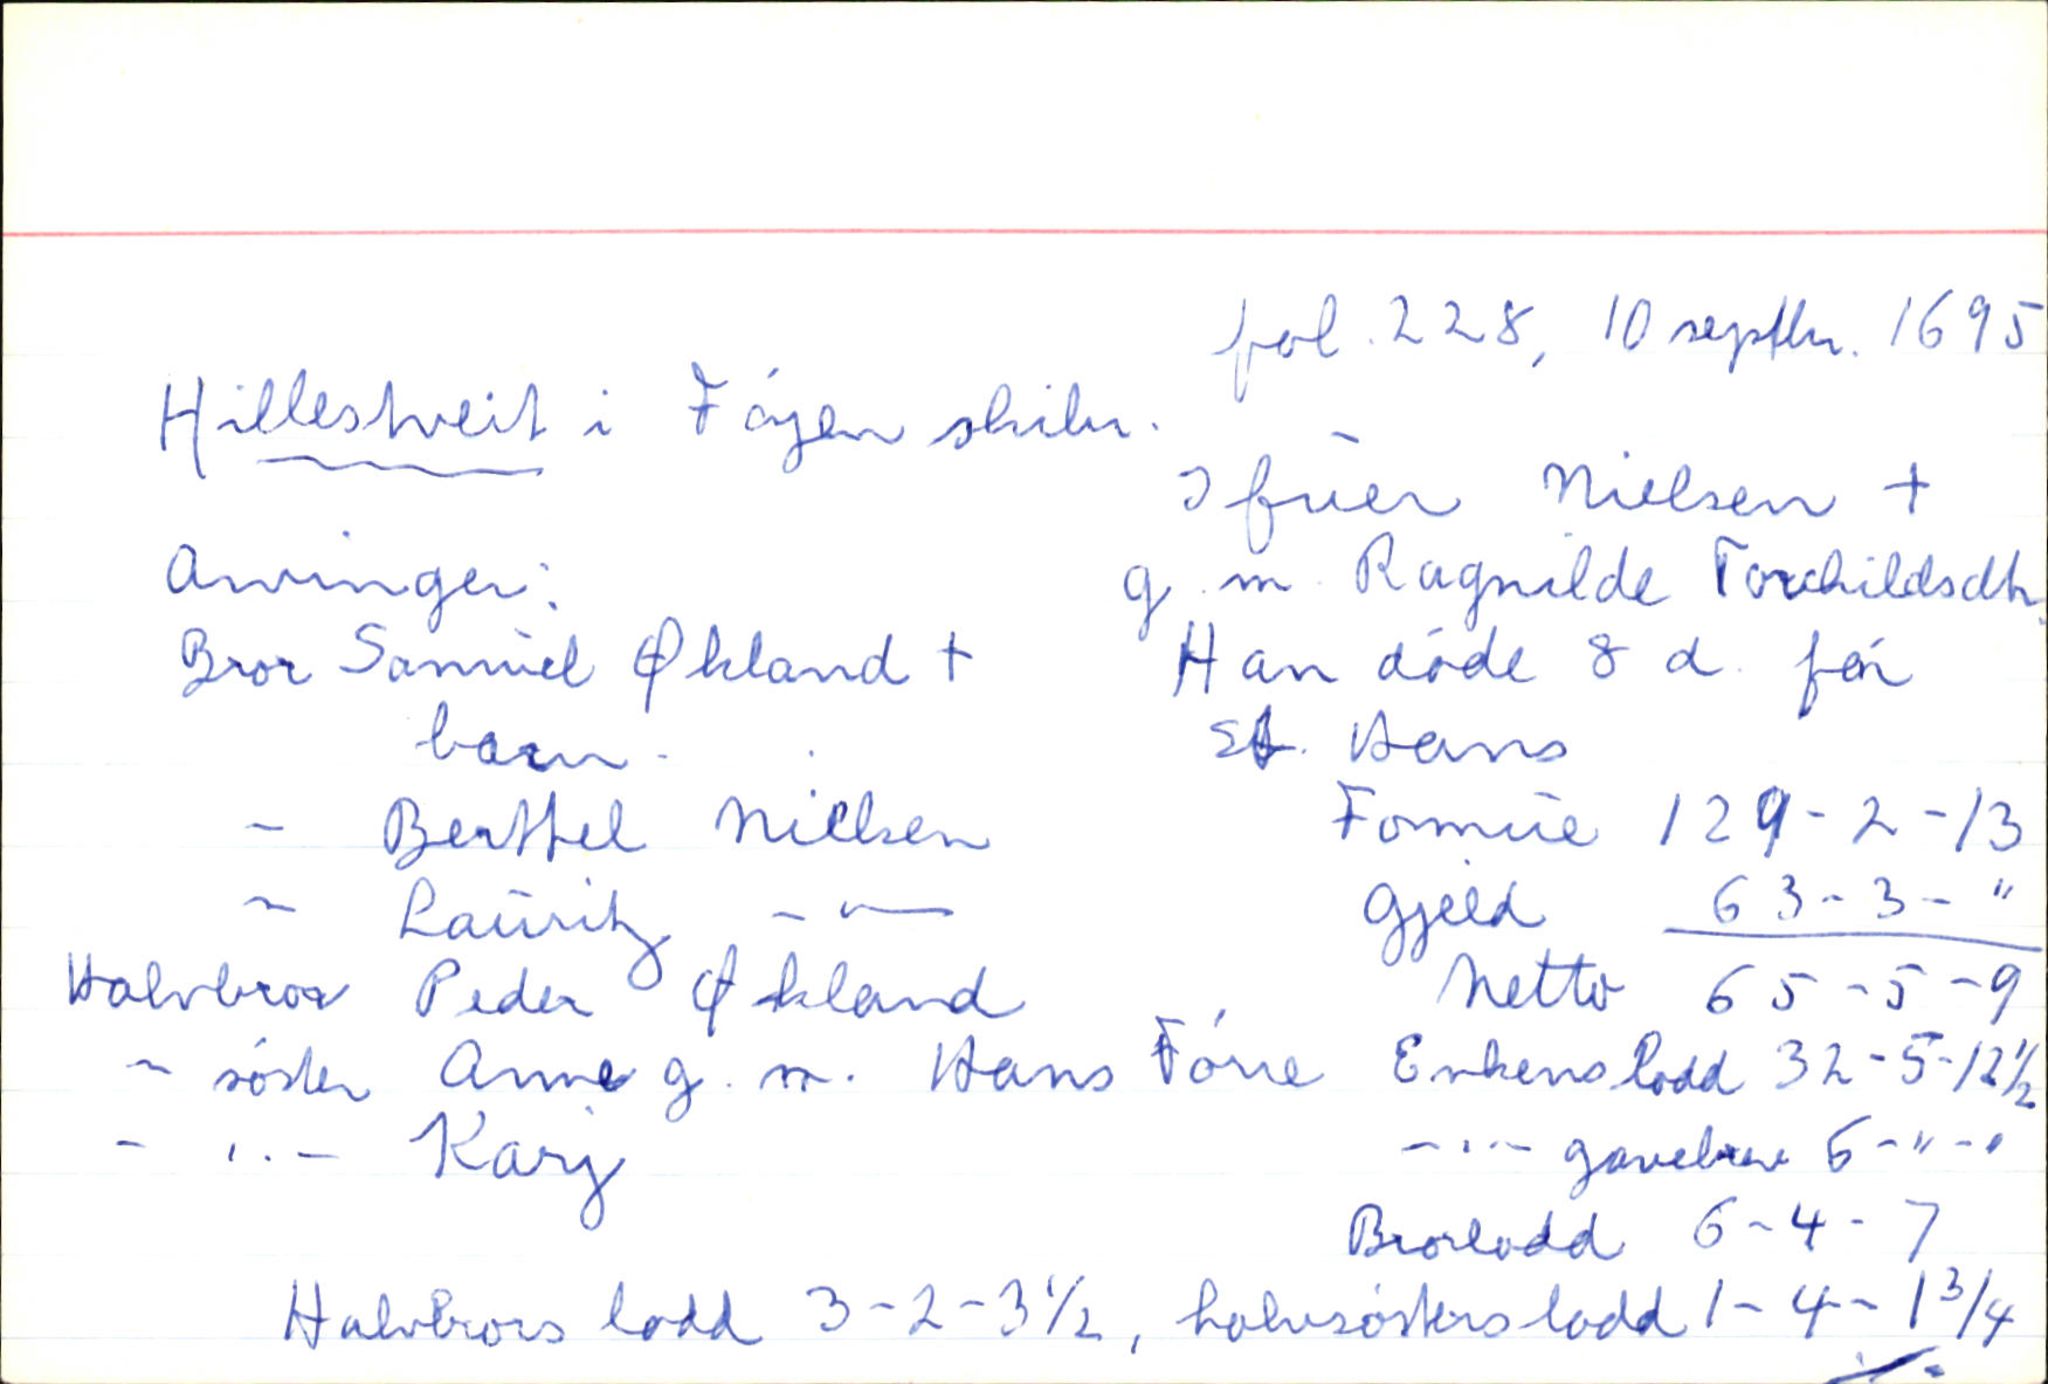 fol. 228, 10 septbr. 1695
Hillestveit i Föyen skibr.
Ifuer Nielsen +
Arvinger:
g. m. Ragnilde Torchildsdtr.
Bror Samuel Økland +
Han döde 8 d. för
barn.
St. Hans
- Berthel Nielsen
Formue 129-2-13
- Lauritz - " -
Gjeld 63-3-"
Halvbror Peder Økland
Netto 65-5-9
- söster Anne g. m. Hans Förre
Enkens lodd 32-5-12 1/2
- " - Karj
- " - gavebrev 6-"-"
Brorlodd 6-4-7
Halvbrors lodd 3-2-3 1/2, halvsösters lodd 1-4-1 3/4